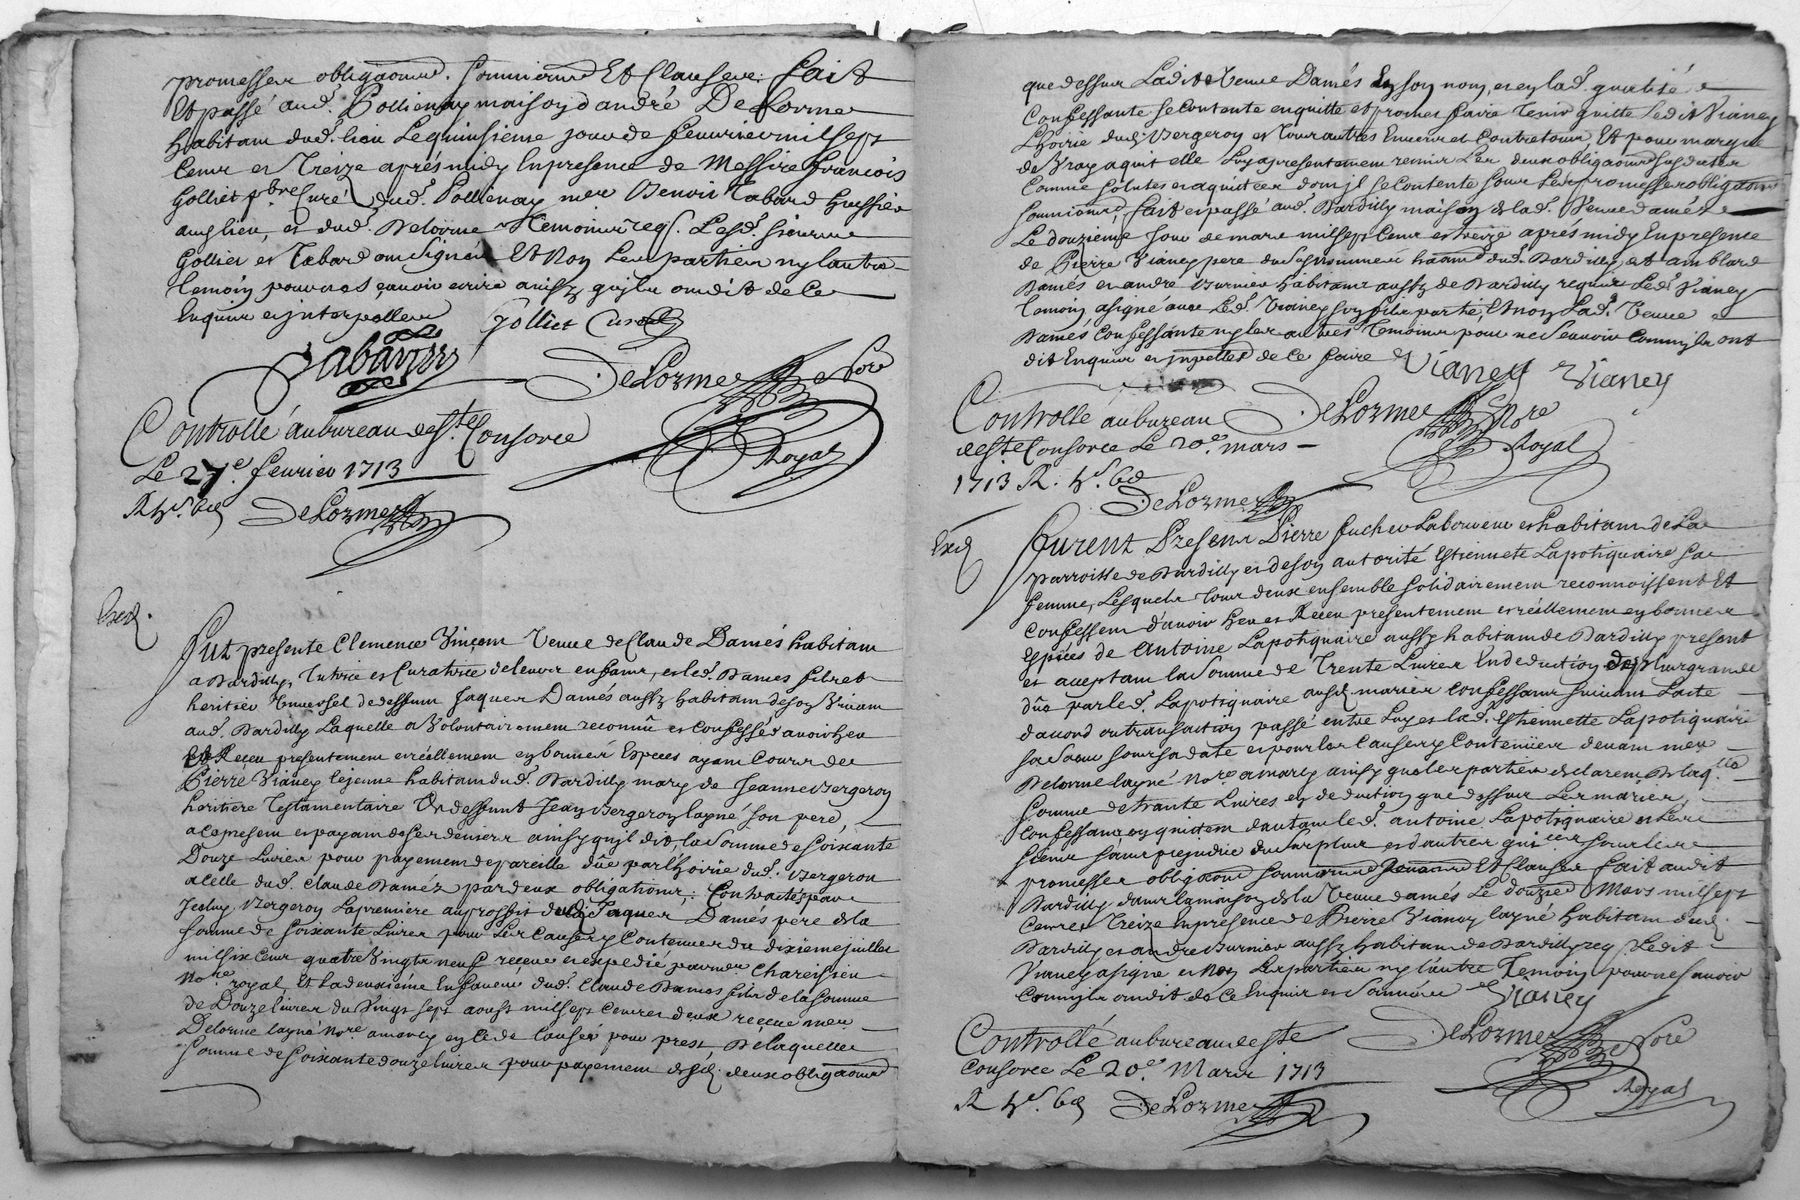 promesses obligaônd. Soumiônd Et Clauses: fait
Et passé aud. Pollienay maison d'andré Delorme
habitam dud. lieu Le quinsieme jour de feuurier mil sept
Cent et Treize aprés midy En presence de Messire francois
Golliet pbre Curé dud. Pollienay me Benoit Tabard huissier
aud lieu, et dud. Delorme Temoins req. Lesd. sieurs
Golliet et Tabard ont signé Et Non Les parties ny lautre
temoin pour ne sçauoir ecrire ainsy qu'ils ont dit de Ce
Enquis et interpelles
Golliet Curé
Tabard
DeLorme Nore
Royal
Controllé au bureau de Ste Consorce
Le 27e. feurier 1713
R hs. 6d
DeLorme
Exd.
Fut presente Clemence Vinçent Veuue de Claude Damés habitam
a Dardilly, Tutrice et Curatrice de leurs enfans, et led. Damés fils et
heritier Vniuersel de deffunt Jaques Damés aussy habitam de son Viuam
aud. Dardilly Laquelle a Volontairement reconnû et Confessé auoir heu
Et Receu presentement et réellement en bonnes Especes ayam Cours de
Pierre Vianey lejeune habitam dud. Dardilly mary de Jeanne Bergeron
heritiere Testamentaire De deffunt Jean Bergeron layné son pere,
a Ce present et payam de ses deniers ainsy qu'il dit, la Somme de Soixante
Douze Liures pour payement de pareille dûe par l'hoirie dud. Bergeron
a Celle dud. Claude Daméz par deux obligations, Contractées par
Jean Bergeron La premiere au proffit dud. Jaques Damés pere de la
somme de soixante Liures pour Les Causes y Contenues du dixieme juillet
mil six Cent quatre Vingts neuf receue et expedié par me Chareisieu
Nore. royal, Et La deuxiéme En faueur dud. Claude Damés fils de la somme
de Douze liures du Vingt sept aoust mil sept Cent et deux receue me
Delorme layné Nore a marcy en le de Causés pour prest, De laquelle
somme de soixante douze liures pour payement desd. deux obligaônd
que dessus Ladite Veuue Damés En son nom, et en lad. qualité
Confessante se Contente en quitte et promet faire Tenir quitte Ledit Vianey
L'hoirie dud. Bergeron et tous autres Enuers et Contre tous, Et pour marque
de Vray aquit elle Luy a presentement remis Les deux obligaônd susdattes
Comme solutes et aquittées dont il se Contente sous Les promesses obligaônd
soumiônd, fait et passé aud. Dardilly maison de lad. Veuue damés
Le douzieme Jour de mars mil sept Cent et treize aprés midy En presence
de Pierre Vianey pere du susnommé habitant dud. Dardilly, et amblard
Damés et andre Burnier habitans aussy de Dardilly requis Led. Vianey
Temoin a signé auec Led. Vianey son fils partie, Et non Lad. Veuue
Damés Confessante ny les autres Temoins pour ne Sçauoir Comme ils ont
dit Enquis et inpellés de Ce faire
Vianey Vianey
Controllé au bureau
de Ste Consorce Le 20e. mars
1713 R. hs. 6d
DeLorme Nore
Royal
DeLorme
Exd
Furent Presens Pierre fucher Laboureur et habitam de La
parroisse de Dardilly et de son autorité Estiennete Lapotiquaire sa
femme, Lesquels Tous deux ensemble solidairement reconnoissent Et
Confessent d'auoir heu et Receu presentement et réellement en bonnes
espéces de Antoine Lapotiquaire aussy habitam de Dardilly present
et acceptam la Somme de Trente Liures En deduction de plus grande
dûe par led. Lapotiquaire ausd. mariés Confessans suiuam Lacte
d'acord ou transaction passé entre Luy et lad. Estiennette Lapotiquaire
sa soeur sous sa date et pour les Causes y Contenües deuam me
Delorme layné Nore a marcy ainsy que les parties declarent De laqlle.
somme de trante Liures en deduction que dessus Les mariés
Confessans en quittent d'autam led. antoine Lapotiquaire et Les
siens sans prejudice du surplus et d'autres qui ... sous les
promesses obligaônd soumiônd Et Clauses fait audit
Dardilly dans la maison de la Veuue damés Le douze Mars mil sept
Cent et Treize En presence de Pierre Vianey layné habitam dud.
Dardilly et andre Burnier aussy habitam de Dardilly req. Ledit
Vianey a signé et Non Les parties ny l'autre Temoin pour ne sauoir
Comme ils ont dit de Ce Enquis et sommés
Vianey
Controllé au bureau de Ste
Consorce Le 20e. Mars 1713
R hs. 6d DeLorme
DeLorme Nore
Royal